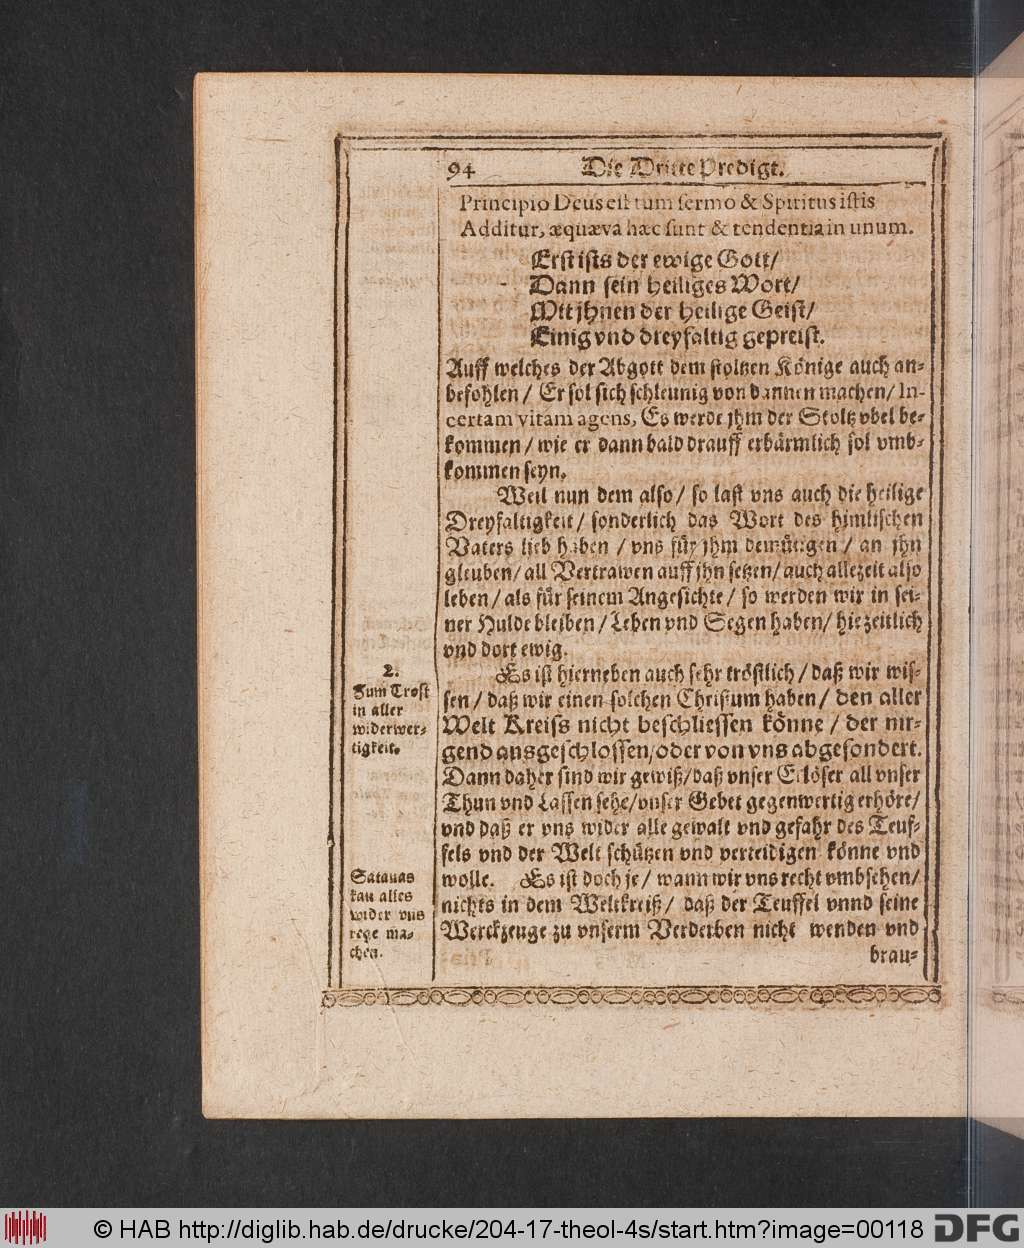 94 Die Dritte Predigt.
Principio Deus est tum sermo & Spiritus istis
Additur, æquæva hæc sunt & tendentia in unum.
Erst ists der ewige Gott/
Dann sein heiliges Wort/
Mit jhnen der heilige Geist/
Einig vnd dreyfaltig gepreist.
Auff welches der Abgott dem stoltzen Könige auch an-
befohlen / Er sol sich schleunig von dannen machen/ In-
certam vitam agens, Es werde jhm der Stoltz vbel be-
kommen / wie er dann bald drauff erbärmlich sol vmb-
kommen seyn.
Weil nun dem also / so last vns auch die heilige
Dreyfaltigkeit / sonderlich das Wort des himlischen
Vaters lieb haben / vns für jhm demütigen / an jhn
gleuben/ all Vertrawen auff jhn setzen/ auch allezeit also
leben / als für seinem Angesichte / so werden wir in sei-
ner Hulde bleiben / Leben vnd Segen haben/ hie zeitlich
vnd dort ewig.
2.
Zum Trost
in aller
widerwer-
tigkeit.
Es ist hierneben auch sehr tröstlich / daß wir wis-
sen / daß wir einen solchen Christum haben / den aller
Welt Kreiss nicht beschliessen könne / der nir-
gend ausgeschlossen/ oder von vns abgesondert.
Dann daher sind wir gewiß/ daß vnser Erlöser all vnser
Thun vnd Lassen sehe/ vnser Gebet gegenwertig erhöre/
vnd daß er vns wider alle gewalt vnd gefahr des Teuf-
fels vnd der Welt schützen vnd verteidigen könne vnd
wolle. Es ist doch je / wann wir vns recht vmbsehen/
nichts in dem Weltkreiß / daß der Teuffel vnnd seine
Werckzeuge zu vnserm Verderben nicht wenden vnd
Satanas
kan alles
wider vns
rege ma-
chen.
brau-
© HAB http://diglib.hab.de/drucke/204-17-theol-4s/start.htm?image=00118 DFG